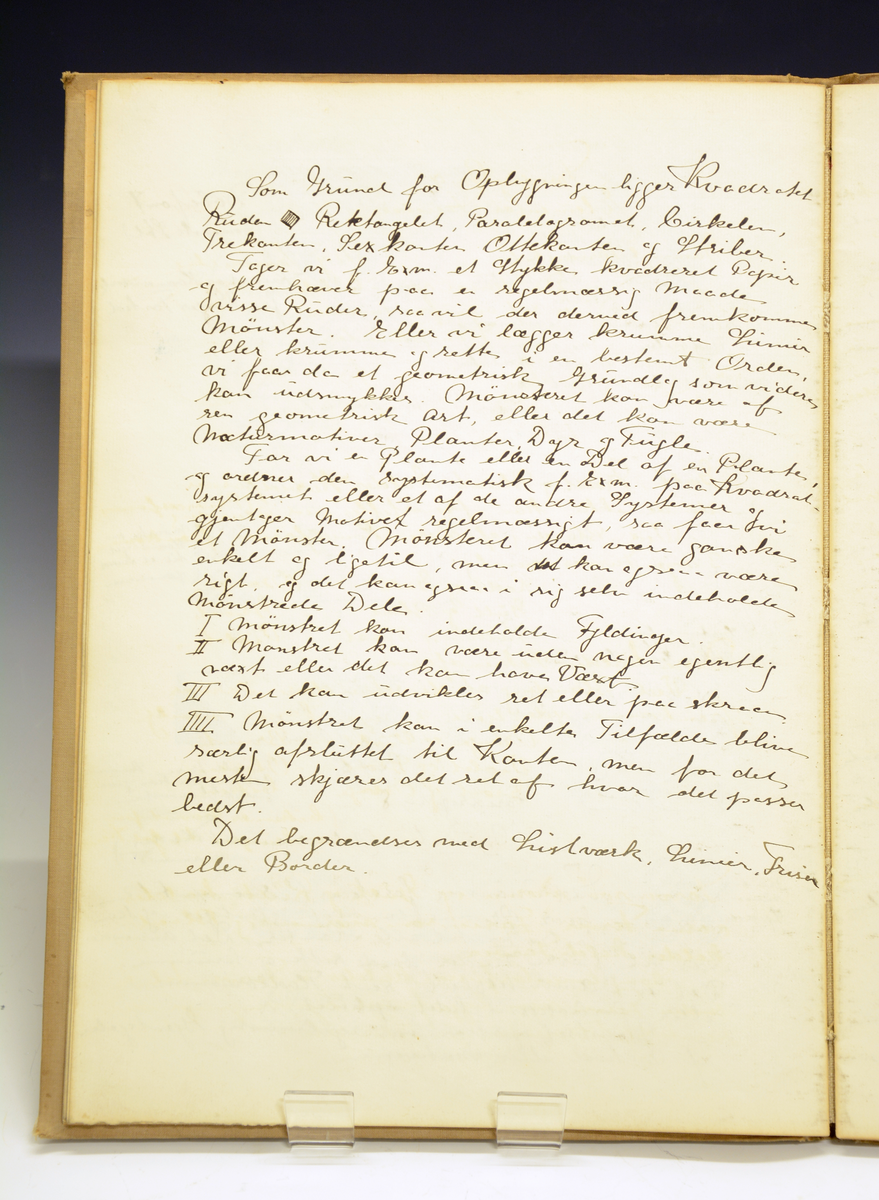 Som Grund for Opbygningen ligger Kvadratet
Ruden Rektangelet, Paralelogramet, Cirkelen,
Trekanten, Sexkanten Ottekanten og Striber.
Tager vi f. Exm. et Stykke kvadreret Papir
og fremhæver paa en regelmæssig Maade
visse Ruder, saa vil der derved fremkomme
Mönster. Eller vi lægger krumme Linier
eller krumme og rette i en bestemt Orden,
vi faar da et geometrisk Grundlag som videre
kan udsmykkes. Mönsteret kan være af
ren geometrisk art, eller det kan være
Naturmotiver, Planter, Dyr og Fugle.
Tar vi en Plante eller en Del af en Plante,
og ordner den systematisk f. Exm. paa Kvadrat-
systemet eller et af de andre Systemer og
gjentager Motivet regelmæssigt, saa faar vi
et Mönster. Mönsteret kan være ganske
enkelt og ligetil, men det kan ogsaa være
rigt, og det kan ogsaa i sig selv indeholde
Mönstrede Dele.
I Mönstret kan indeholde Fyldinger.
II Mönstret kan være uden nogen egentlig
væxt eller det kan have Væxt
III Det kan udvikles ret eller paa skraa
IIII Mönstret kan i enkelte Tilfælde blive
særlig afsluttet til Kanten, men for det
meste skjæres det ret af hvor det passer
bedst.
Det begrændses med Listværk, Linier, Friser
eller Border.